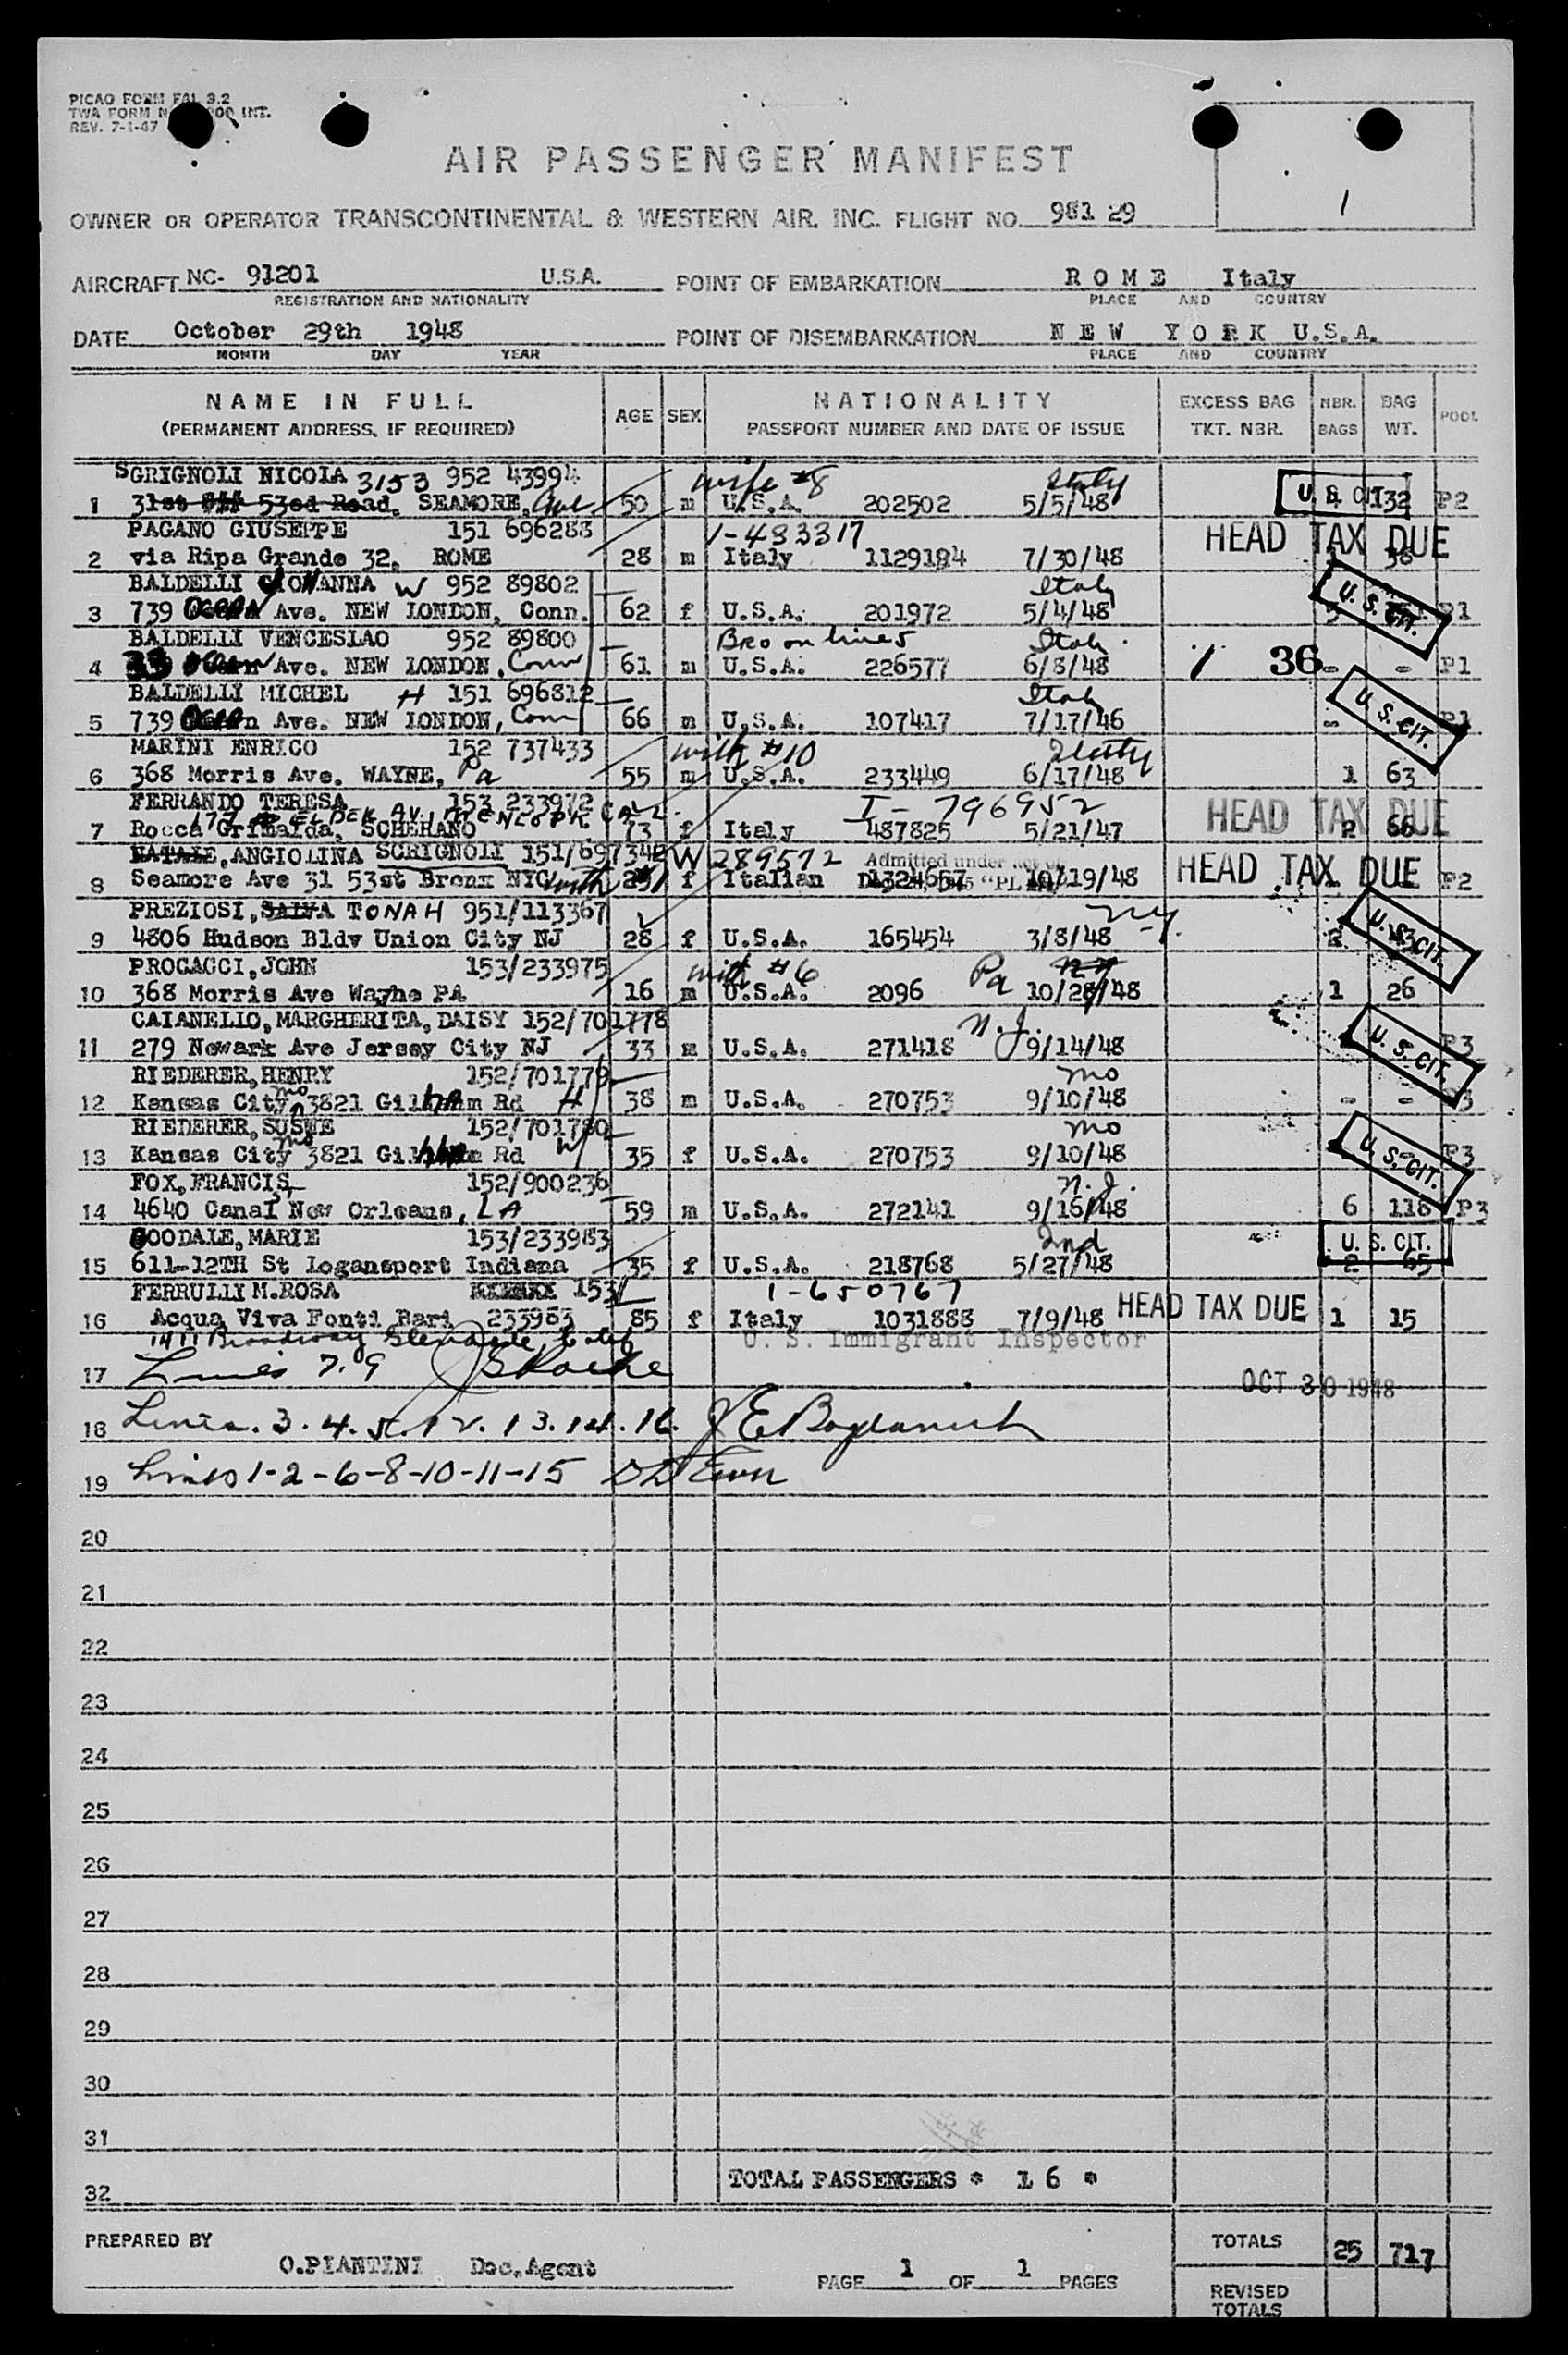 PICAO FORM FAL 3.2
TWA FORM N 00 INT.
REV. 7-1-47
AIR PASSENGER MANIFEST
1
OWNER OR OPERATOR TRANSCONTINENTAL & WESTERN AIR. INC. FLIGHT NO. 981 29
AIRCRAFT NC- 91201 U.S.A. POINT OF EMBARKATION ROME Italy
REGISTRATION AND NATIONALITY PLACE AND COUNTRY
DATE October 29th 1948 POINT OF DISEMBARKATION NEW YORK U.S.A.
MONTH DAY YEAR PLACE AND COUNTRY
NAME IN FULL AGE SEX NATIONALITY EXCESS BAG NBR. BAG POOL
(PERMANENT ADDRESS, IF REQUIRED) PASSPORT NUMBER AND DATE OF ISSUE TKT. NBR. BAGS WT.
SGRIGNOLI NICOLA 3153 952 43994 wife #8 Italy
1 31st 53ed Road. SEAMORE, Ave 50 m U.S.A. 202502 5/5/48 U.S. CIT. 132 P2
PAGANO GIUSEPPE 151 696288 1-483317 HEAD TAX DUE
2 via Ripa Grande 32, ROME 28 m Italy 1129184 7/30/48 36
BALDELLI GIOVANNA W 952 89802 Italy
3 739 OCEAN Ave. NEW LONDON, Conn. 62 f U.S.A. 201972 5/4/48 U.S. CIT. P1
BALDELLI VENCESLAO 952 89800 Bro on line 5 Italy
4 33 Ocean Ave. NEW LONDON, Conn 61 m U.S.A. 226577 6/8/48 1 36 - - P1
BALDELLI MICHEL H 151 696812 Italy
5 739 Ocean Ave. NEW LONDON, Conn 66 m U.S.A. 107417 7/17/46 - U.S. CIT. P1
MARINI ENRICO 152 737433 with #10 Italy
6 368 Morris Ave. WAYNE, Pa 55 m U.S.A. 233449 6/17/48 1 63
FERRANDO TERESA 153 233972 I-796952
177 ELDER AV. MENLO PK CAL.
7 Rocca Grimalda, SCHERANO 73 f Italy 487825 5/21/47 HEAD TAX DUE 2 66
NATALE, ANGIOLINA SCRIGNOLI 151/697342 W 289572 Admitted under act of
8 Seamore Ave 31 53st Bronx NYC with #1 f Italian 1324657 10/19/48 HEAD TAX DUE P2
PREZIOSI, SALVA TONAH 951/113367 NY.
9 4806 Hudson Bldv Union City NJ 28 f U.S.A. 165454 3/8/48 2 U.S. CIT.
PROCACCI, JOHN 153/233975 with #6 Pa NY
10 368 Morris Ave Wayne PA 16 m U.S.A. 2096 10/28/48 1 26
CAIANELLO, MARGHERITA, DAISY 152/701778 N.J.
11 279 Newark Ave Jersey City NJ 33 m U.S.A. 271418 9/14/48 U.S. CIT. P3
RIEDERER, HENRY 152/701779 Mo
12 Kansas City Mo 3821 Gilham Rd H 38 m U.S.A. 270753 9/10/48 - - 3
RIEDERER, SUSIE 152/701780 Mo
13 Kansas City Mo 3821 Gilham Rd W 35 f U.S.A. 270753 9/10/48 U.S. CIT. P3
FOX, FRANCIS 152/900236 N.J.
14 4640 Canal New Orleans, LA 59 m U.S.A. 272141 9/16/48 6 118 P3
GOODALE, MARIE 153/233983 Ind
15 611-12TH St Logansport Indiana 35 f U.S.A. 218768 5/27/48 U.S. CIT. 2 65
FERRULLI M.ROSA 153/ 1-650767
16 Acqua Viva Fonti Bari 233983 85 f Italy 1031888 7/9/48 HEAD TAX DUE 1 15
1411 Broadway Glendale, Calif U. S. Immigrant Inspector
17 Lines 7. 9 OCT 30 1948
18 Lines. 3. 4. 5. 12. 13. 14. 16.
19 Lines 1-2-6-8-10-11-15
20
21
22
23
24
25
26
27
28
29
30
31
32 TOTAL PASSENGERS * 16 *
PREPARED BY O.PIANTINI Doc.Agent PAGE 1 OF 1 PAGES TOTALS 25 717
REVISED TOTALS